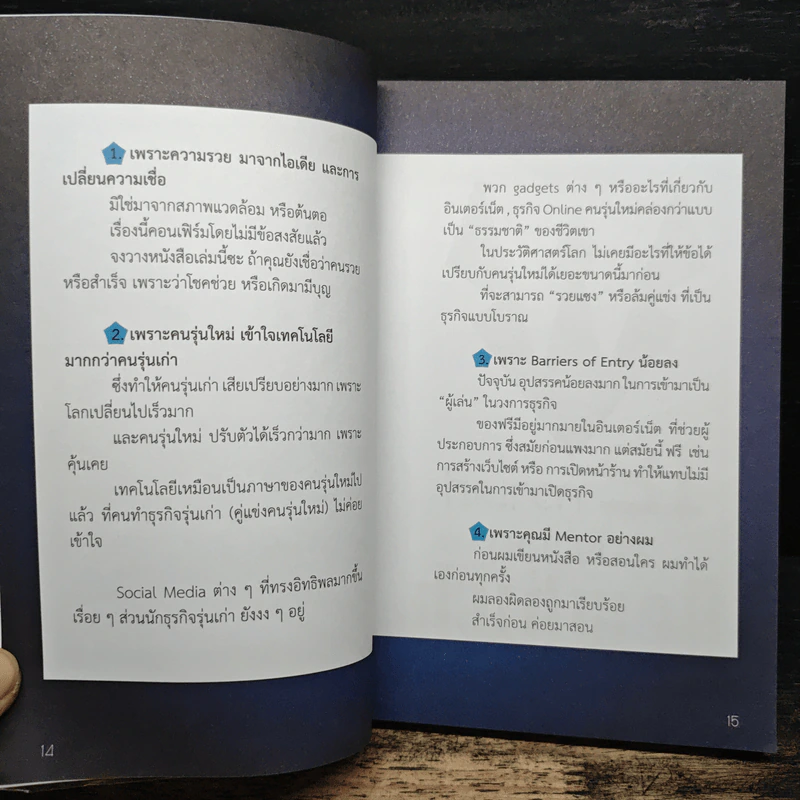 1. เพราะความรวย มาจากไอเดีย และการ
เปลี่ยนความเชื่อ
มิใช่มาจากสภาพแวดล้อม หรือต้นตอ
เรื่องนี้คอนเฟิร์มโดยไม่มีข้อสงสัยแล้ว
จงวางหนังสือเล่มนี้ซะ ถ้าคุณยังเชื่อว่าคนรวย
หรือสำเร็จ เพราะว่าโชคช่วย หรือเกิดมามีบุญ
2. เพราะคนรุ่นใหม่ เข้าใจเทคโนโลยี
มากกว่าคนรุ่นเก่า
ซึ่งทำให้คนรุ่นเก่า เสียเปรียบอย่างมาก เพราะ
โลกเปลี่ยนไปเร็วมาก
และคนรุ่นใหม่ ปรับตัวได้เร็วกว่ามาก เพราะ
คุ้นเคย
เทคโนโลยีเหมือนเป็นภาษาของคนรุ่นใหม่ไป
แล้ว ที่คนทำธุรกิจรุ่นเก่า (คู่แข่งคนรุ่นใหม่) ไม่ค่อย
เข้าใจ
Social Media ต่าง ๆ ที่ทรงอิทธิพลมากขึ้น
เรื่อย ๆ ส่วนนักธุรกิจรุ่นเก่า ยังงง ๆ อยู่
14
พวก gadgets ต่าง ๆ หรืออะไรที่เกี่ยวกับ
อินเตอร์เน็ต , ธุรกิจ Online คนรุ่นใหม่คล่องกว่าแบบ
เป็น “ธรรมชาติ” ของชีวิตเขา
ในประวัติศาสตร์โลก ไม่เคยมีอะไรที่ให้ข้อได้
เปรียบกับคนรุ่นใหม่ได้เยอะขนาดนี้มาก่อน
ที่จะสามารถ “รวยแซง” หรือล้มคู่แข่ง ที่เป็น
ธุรกิจแบบโบราณ
3. เพราะ Barriers of Entry น้อยลง
ปัจจุบัน อุปสรรคน้อยลงมาก ในการเข้ามาเป็น
“ผู้เล่น” ในวงการธุรกิจ
ของฟรีมีอยู่มากมายในอินเตอร์เน็ต ที่ช่วยผู้
ประกอบการ ซึ่งสมัยก่อนแพงมาก แต่สมัยนี้ ฟรี เช่น
การสร้างเว็บไซต์ หรือ การเปิดหน้าร้าน ทำให้แทบไม่มี
อุปสรรคในการเข้ามาเปิดธุรกิจ
4. เพราะคุณมี Mentor อย่างผม
ก่อนผมเขียนหนังสือ หรือสอนใคร ผมทำได้
เองก่อนทุกครั้ง
ผมลองผิดลองถูกมาเรียบร้อย
สำเร็จก่อน ค่อยมาสอน
15